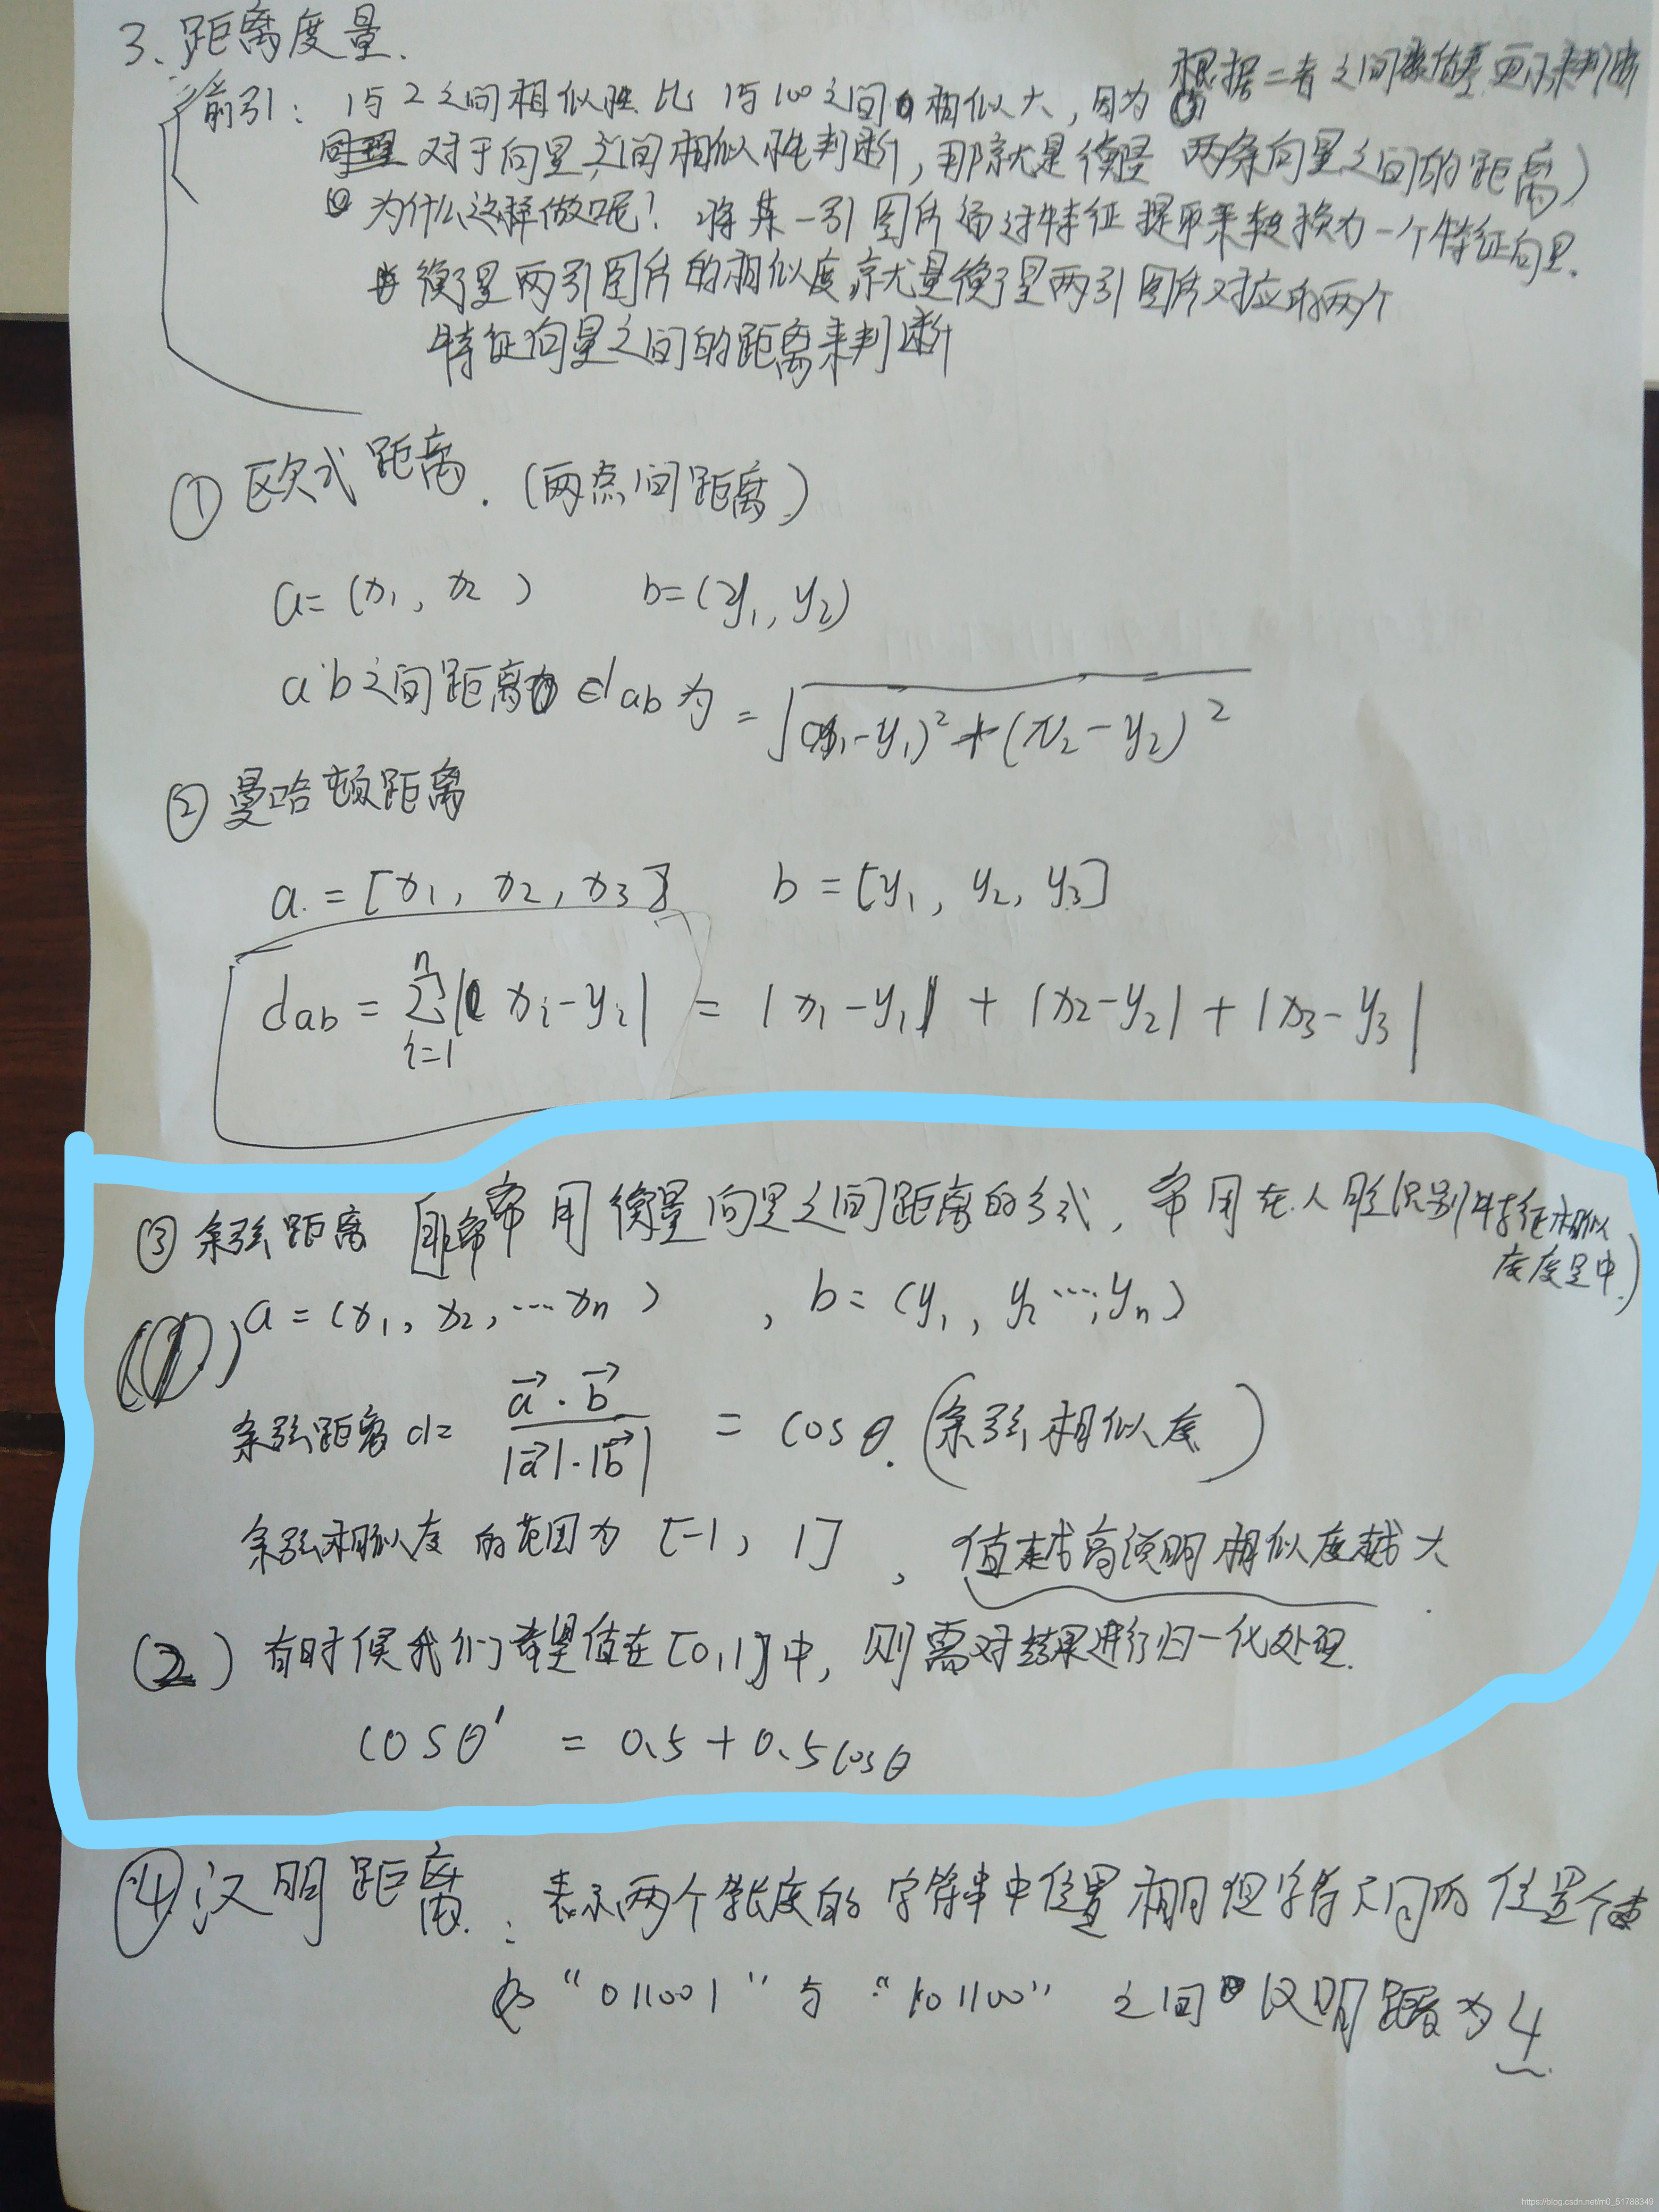 3、距离度量.
前引: 1与2之间相似性比 1与100之间相似大, 因为 根据二者之间来判断
同理 对于向量之间相似性判断, 那就是衡量 两条向量之间的距离)
为什么这样做呢! 将某一引图片通过特征提取来转换为一个特征向量.
衡量两引图片的相似度,就是衡量两引图片对应的两个
特征向量之间的距离来判断
① 欧式距离. (两点间距离)
a=(x₁, x₂) b=(y₁, y₂)
a b之间距离 dab 为 = √(x₁-y₁)²+(x₂-y₂)²
② 曼哈顿距离
a = [x₁, x₂, x₃] b = [y₁, y₂, y₃]
dab = Σⁿᵢ₌₁|xᵢ-yᵢ| = |x₁-y₁| + |x₂-y₂| + |x₃-y₃|
③ 余弦距离 [非常常用衡量向量之间距离的方式, 常用在人脸识别特征相似
度度量中)
(1) a = (x₁, x₂, ...xₙ) , b = (y₁, y₂...,yₙ)
余弦距离 d= a⃗·b⃗ / |a⃗|·|b⃗| = cosθ. (余弦相似度)
余弦相似度的范围为 [-1, 1] , 值越高说明相似度越大.
(2) 有时候我们希望值在[0,1]中, 则需对结果进行归一化处理.
cosθ' = 0.5+0.5cosθ
④ 汉明距离: 表示两个等长度的字符串中位置相同但字符不同的位置个数
"011001" 与 "101100" 之间 汉明距离为4
https://blog.csdn.net/m0_51788349